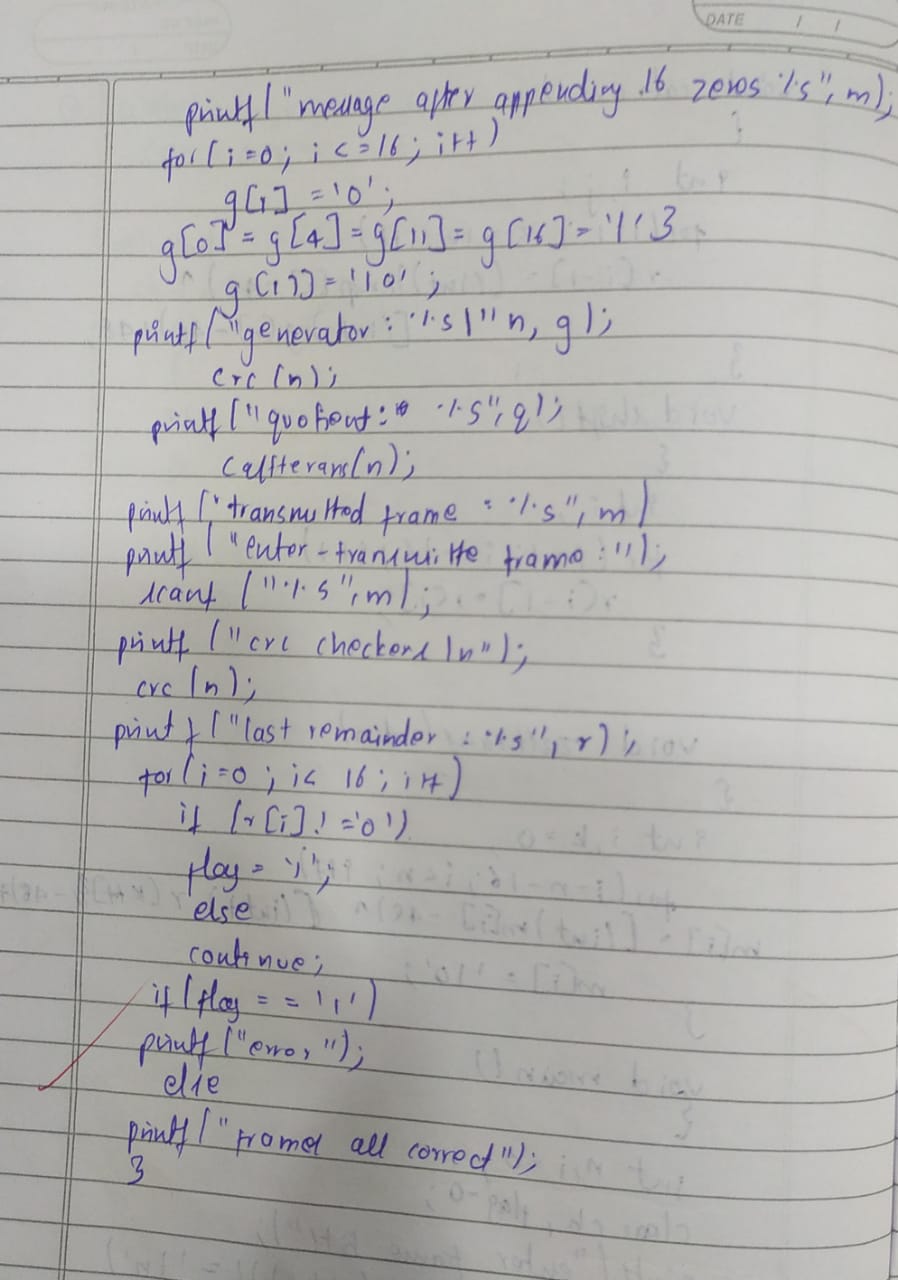 DATE / /
printf("message after appending 16 zeros %s", m);
for(i=0; i<=16; i++)
g[i]='0';
g[0]=g[4]=g[11]=g[16]='1';
g[17]='\0';
printf("generator: %s\n", g);
crc(n);
printf("quotient: %s", q);
caltrans(n);
printf("transmitted frame: %s", m)
printf("enter-transmitte frame:");
scanf("%s", m);
printf("crc checkers\n");
crc(n);
printf("last remainder: %s", r);
for(i=0; i< 16; i++)
if (r[i]!='0')
flag='1';
else
continue;
if(flag=='1')
printf("error");
else
printf("frames all correct");
}